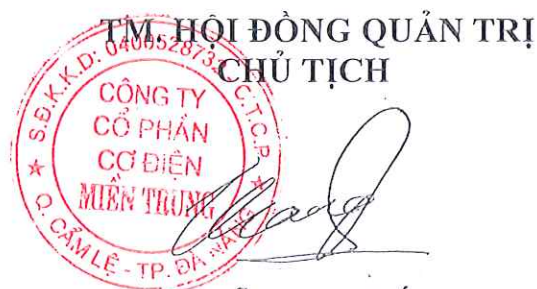 TM. HỘI ĐỒNG QUẢN TRỊ
CHỦ TỊCH
S.Đ.K.K.D: 0400528732 - C.T.C.P
CÔNG TY
CỔ PHẦN
CƠ ĐIỆN
MIỀN TRUNG
Q. CẨM LỆ - TP. ĐÀ NẴNG